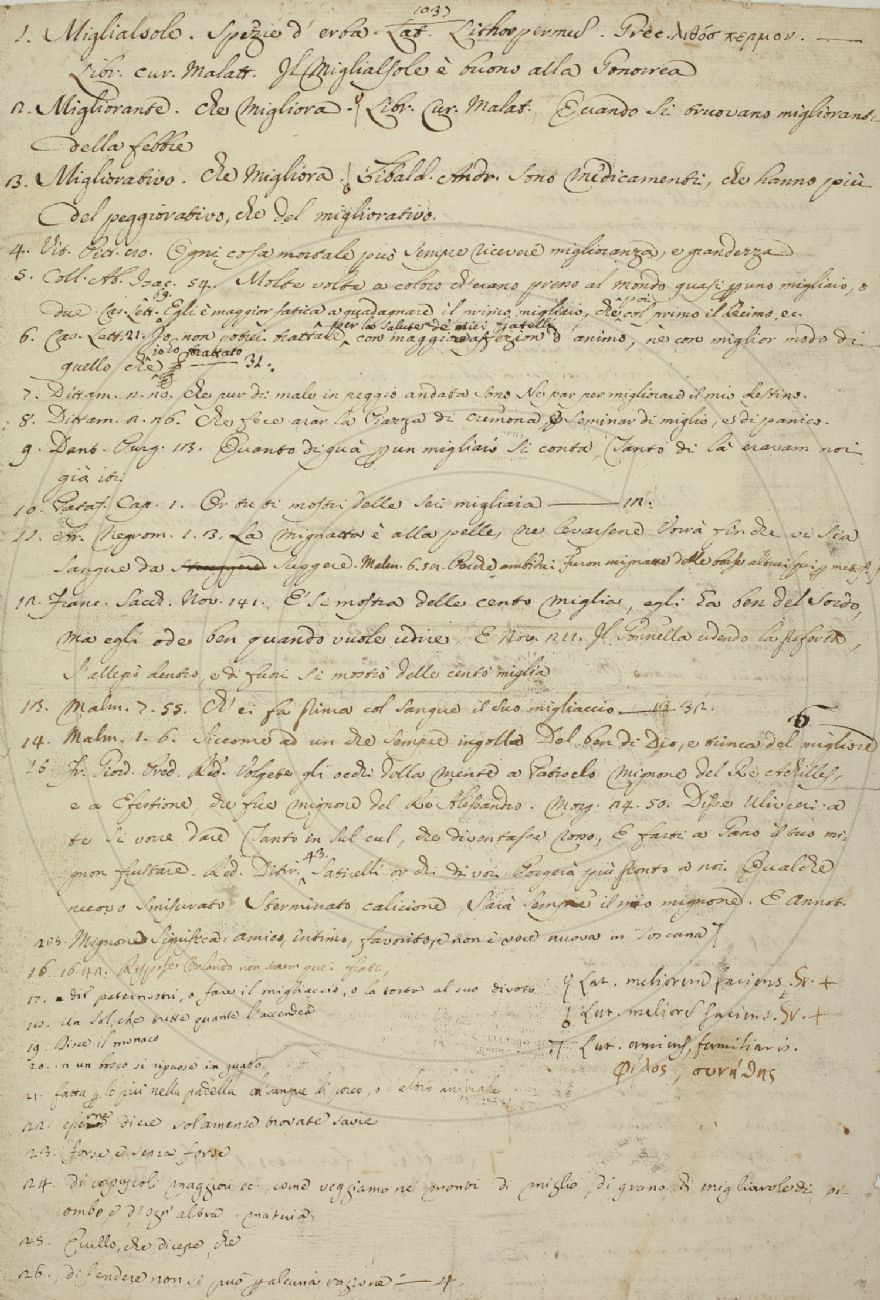 (03)
1. Miglialsole. Spezie d'erba. Lat. Lithospermus. Grec. λιθόσπερμον. —
Libr. cur. Malatt. Il Miglialsole è buono alla Gonorrea
2. Migliorante. Che migliora. Libr. Cur. Malat. Quando si truovano miglioranti
della febbre
3. Migliorativo. Che Migliora. Tibald. Andr. Sono medicamenti, che hanno più
del peggiorativo, che del migliorativo.
4. Vit. Ogni cosa mortale può sempre ricevere miglioranza, e grandezza
5. Coll. Ab. Isac. 54. Molte volte a coloro ch'erano presso al mondo quasi per uno migliaio, o
due. Car. Lett. 19. Egli è maggior fatica a guadagnare il primo migliaio, che poi col primo il decimo, ec.
6. Car. Lett. 21. Io non potrei trattare per la salute de' miei fratelli con maggior affezion d'animo, nè con miglior modo di
quello che io ho trattato — 31.
7. Dittam. 2. 20. Che pur di male in peggio andata sono Ne par per migliorare il mio destino.
8. Dittam. 2. 26. Che fece arar la Piazza di Cremona, E seminar di miglio, e di panico.
9. Dant. Purg. 13. Quanto di quà per un migliaio si conta, Tanto di là eravam noi
già iti.
10. Pataf. Cap. 1. Or tu ti mostri delle sei migliaia — 12.
11. Ar. Negrom. 1. 3. La mignatta è alla pelle, ne levarsene vorrà finchè vi sia
sangue da suggere. Malm. 6. Perchè ambidui furon mignatte delle borse altrui
12. Franc. Sacch. Nov. 141. E si mostra delle cento miglia, egli ha ben del sordo,
ma egli ode ben quando vuole udire. E Nov. 211. Il Gonnella udendo la profferta,
s'allegrò dentro, e di fuori si mostrò delle cento miglia
13. Malm. 7. 55. Ch'ei fa stima col sangue il suo migliaccio. — 32.
14. Malm. 1. 6. Siccome ad un che sempre ingolla Del ben di Dio, e trinca del migliore 6
15. Fr. Giord. Pred. Rd. Volgete gli occhi della mente a Patroclo mignone del Re Achilles,
e a Efestione che fue mignone del Re Alessandro. Morg. 24. 50. Disse Ulivieri: a
te si vorre' dare Tanto in sul cul, che diventasse rosso, E farti a Gano il tuo mi-
gnon frustare. Red. Ditir. 43. Satirelli or chi di voi Porgerà più pronto a noi Qualche
nuovo smisurato Sterminato calicione, Sarà sempre il mio mignone. E Annot.
205. Mignone significa amico, intimo, favorito, e non è voce nuova in Toscana
16. 1642. Rispose Orlando non
17. dir paternostri, o fare il migliaccio, o la torta al suo divoto
18. Un sol, che tutte quante l'accendea
19. Dire il monaco
20. in un bosco si ripuose in guato.
21. fatta per lo più nella padella col sangue di porco, o d'altro animale
22. dice solamente trovate savie
23. forse, e senza forse
24. di corpuscoli maggiori ec. come veggiamo ne' monti di miglio, di grano, di migliarole di pi-
ombo, e d'ogn'altra materia.
25. Quello, che dicesse, che
26. difendere non si può per alcuna ragione — 4.
Lat. meliorem faciens. Gr. +
Lat. melior faciens. Gr. +
Lat. amicus, familiaris.
φίλος, συνήθης